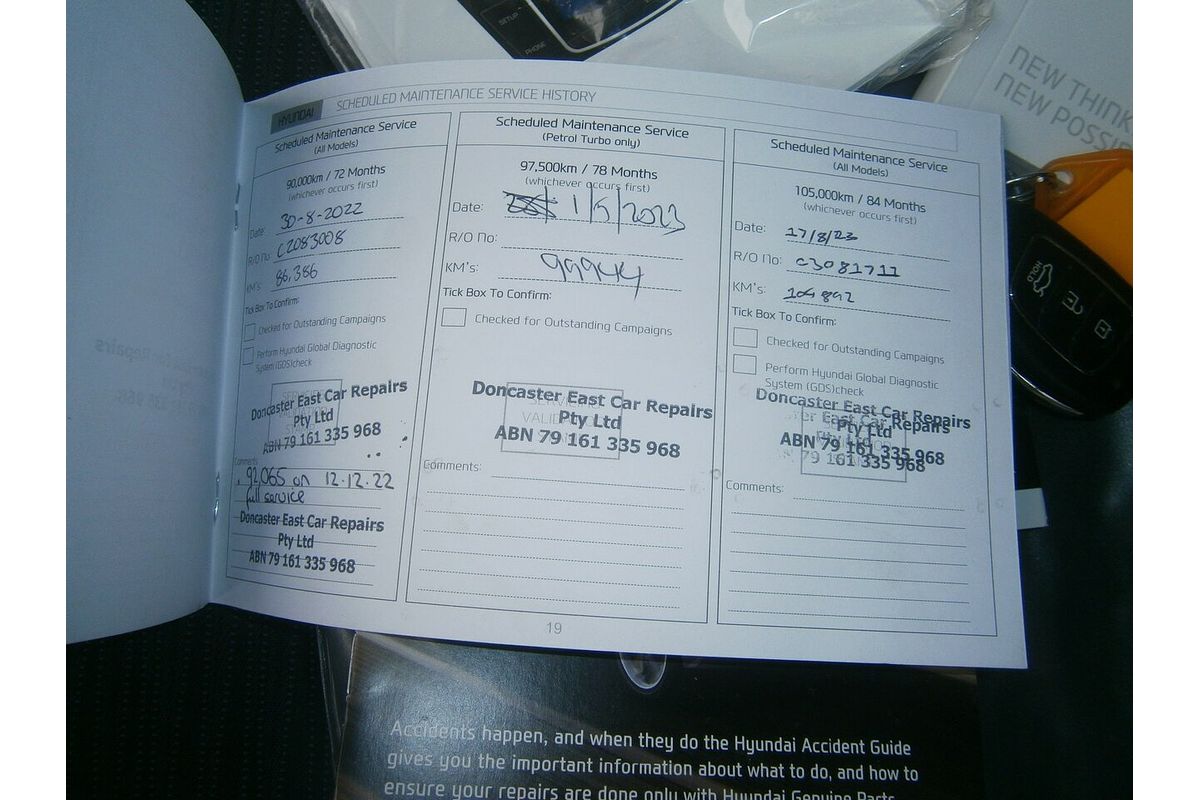 SETUP
PHONE
NEW THINK
NEW POSSIB
HYUNDAI
SCHEDULED MAINTENANCE SERVICE HISTORY
Scheduled Maintenance Service
(All Models)
90,000km / 72 Months
(whichever occurs first)
Date: 30-8-2022
R/O No: C2083008
KM's: 86,386
Tick Box To Confirm:
Checked for Outstanding Campaigns
Perform Hyundai Global Diagnostic
System (GDS)check
Doncaster East Car Repairs
Pty Ltd
ABN 79 161 335 968
Comments:
92,065 on 12.12.22
full service
Doncaster East Car Repairs
Pty Ltd
ABN 79 161 335 968
Scheduled Maintenance Service
(Petrol Turbo only)
97,500km / 78 Months
(whichever occurs first)
Date: 1/5/2023
R/O No:
KM's: 99944
Tick Box To Confirm:
Checked for Outstanding Campaigns
Doncaster East Car Repairs
Pty Ltd
ABN 79 161 335 968
Comments:
Scheduled Maintenance Service
(All Models)
105,000km / 84 Months
(whichever occurs first)
Date: 17/8/23
R/O No: C3081711
KM's: 104892
Tick Box To Confirm:
Checked for Outstanding Campaigns
Perform Hyundai Global Diagnostic
System (GDS)check
Doncaster East Car Repairs
Pty Ltd
ABN 79 161 335 968
Comments:
19
HOLD
Accidents happen, and when they do the Hyundai Accident Guide
gives you the important information about what to do, and how to
ensure your repairs are done only with Hyundai Genuine Parts